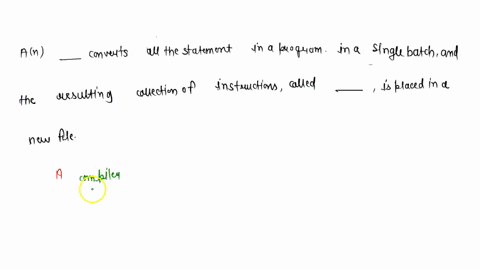 A(n) ___ converts all the statement in a program. in a single batch, and
the resulting collection of instructions, called ___, is placed in a
new file.
A compiler